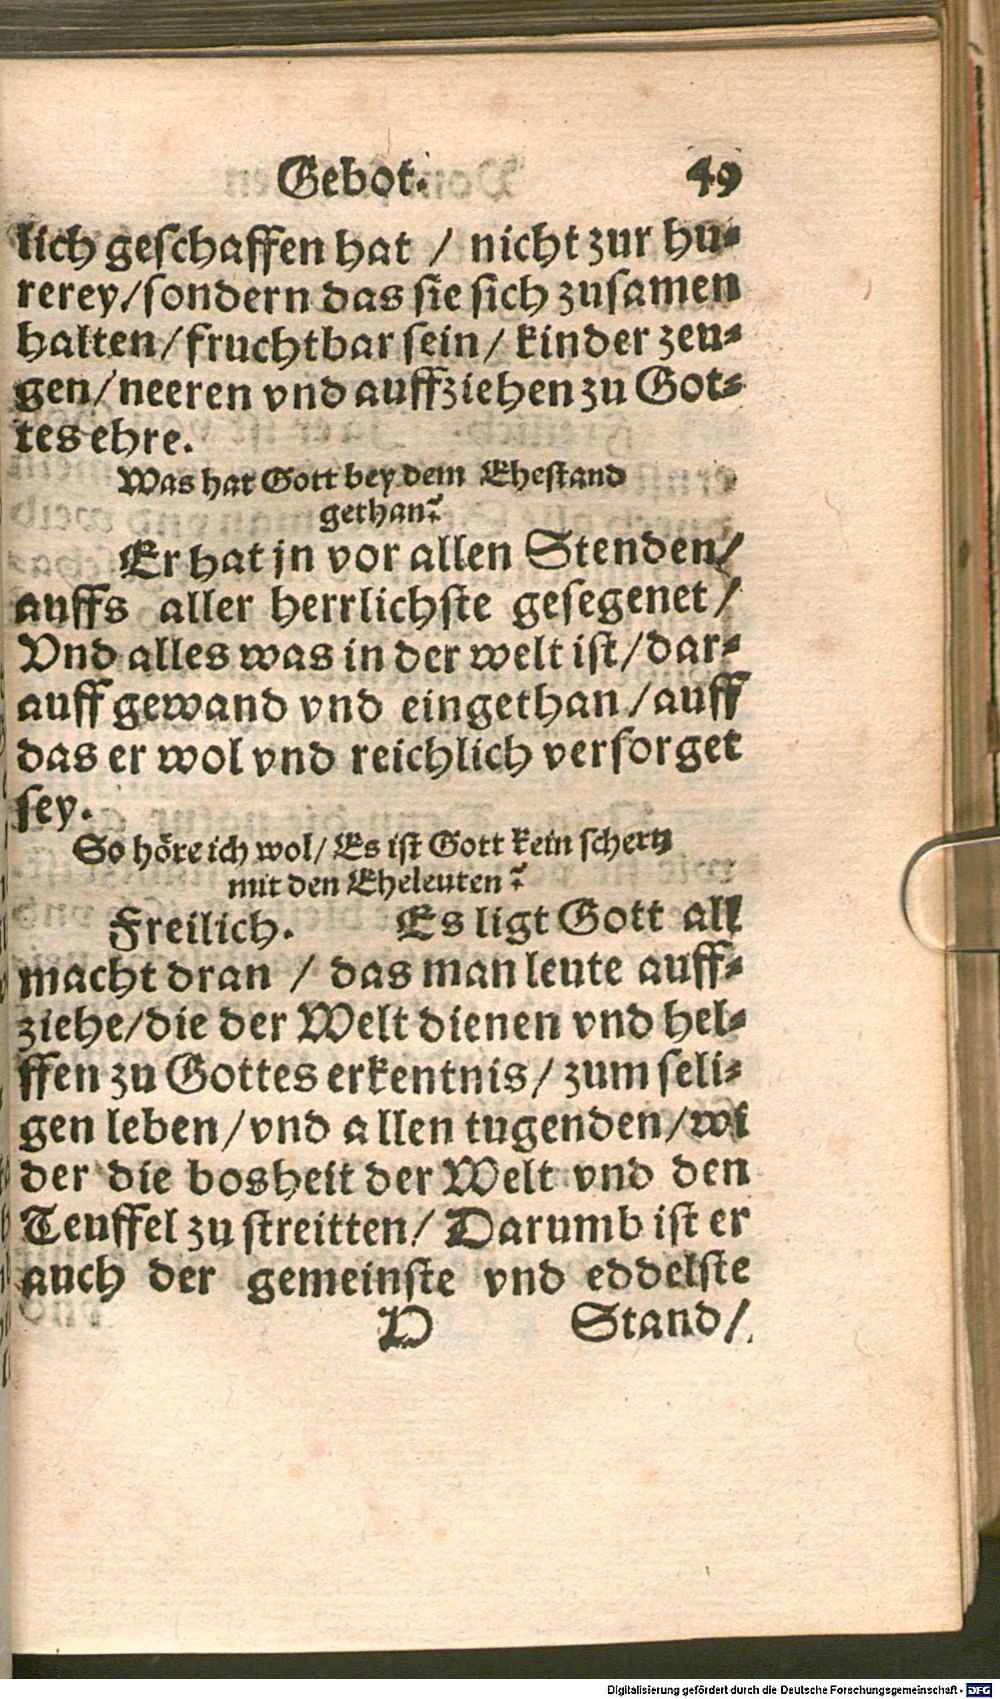 Gebot. 49
lich geschaffen hat / nicht zur hu⸗
rerey/sondern das sie sich zusamen
halten/fruchtbar sein/ kinder zeu⸗
gen/neeren vnd auffziehen zu Got⸗
tes ehre.
Was hat Gott bey dem Ehestand
gethan?
Er hat jn vor allen Stenden/
auffs aller herrlichste gesegenet/
Vnd alles was in der welt ist/dar⸗
auff gewand vnd eingethan/auff
das er wol vnd reichlich versorget
sey.
So höre ich wol/ Es ist Gott kein schertz
mit den Eheleuten?
Freilich. Es ligt Gott all
macht dran / das man leute auff⸗
ziehe/die der Welt dienen vnd hel⸗
ffen zu Gottes erkentnis/ zum seli⸗
gen leben/vnd allen tugenden/wi
der die bosheit der Welt vnd den
Teuffel zu streitten/ Darumb ist er
auch der gemeinste vnd eddelste
Stand/
Digitalisierung gefördert durch die Deutsche Forschungsgemeinschaft - DFG